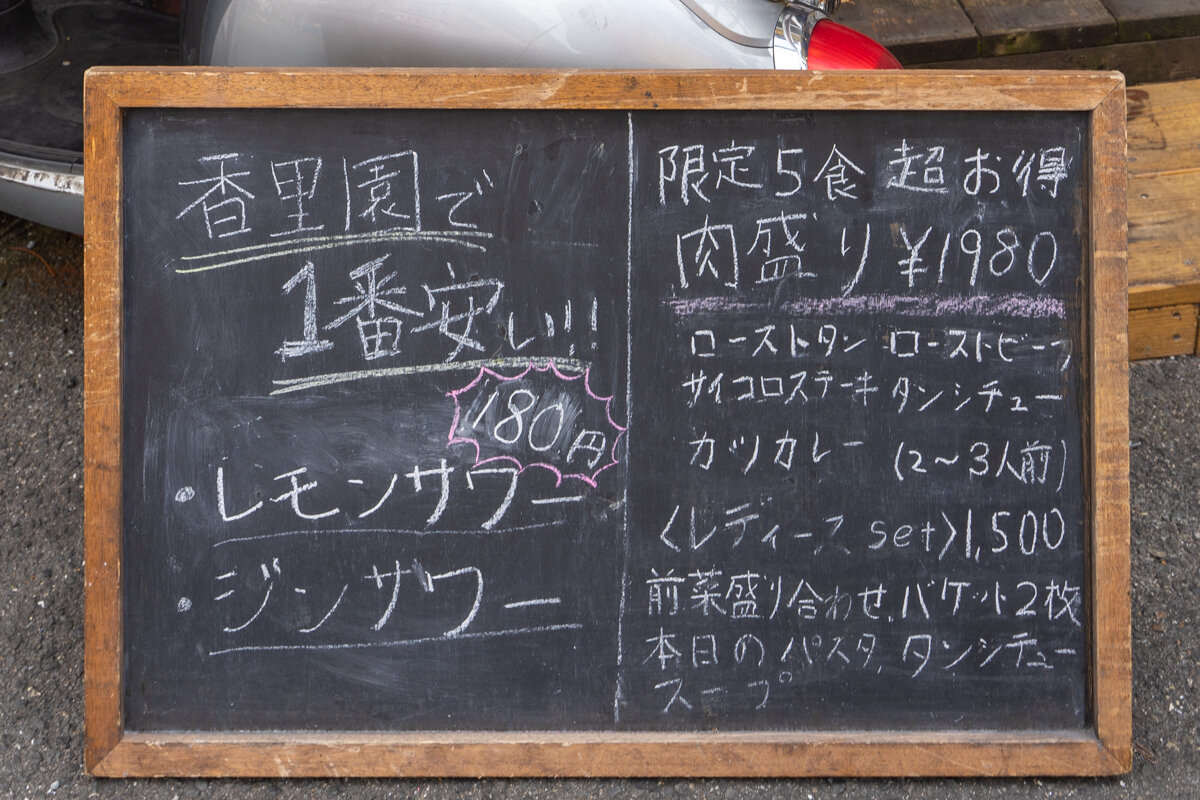 香里園で
1番安い!!
180円
・レモンサワー
・ジンサワー
限定5食 超お得
肉盛り ¥1980
ローストタン ローストビーフ
サイコロステーキ タンシチュー
カツカレー (2～3人前)
〈レディース set〉1,500
前菜盛り合わせ、バケット2枚
本日のパスタ、タンシチュー
スープ